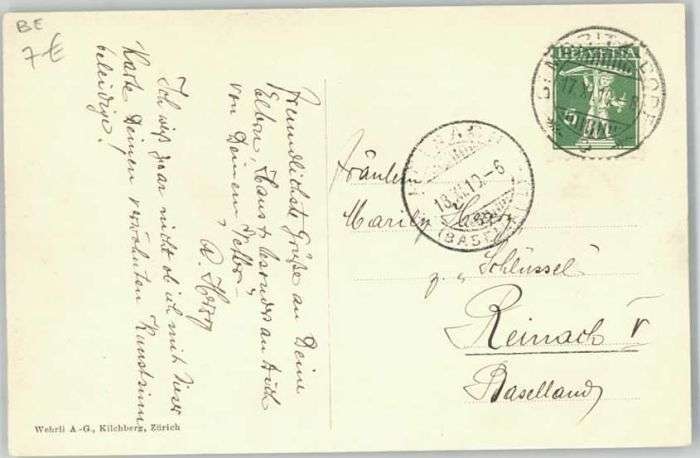 BE
7 €
Freundlichste Grüße an Deine
Eltern, Hans & besonders an Dich
von Deinem Vetter
Ich weiß zwar nicht ob ich mit dieser
Karte Deinen verwöhnten Kunstsinn
beleidige!
HELVETIA
5
REINACH
18. 10.-6
(BASEL)
Fräulein
z. „Schlüssel"
Reinach
Baselland
Wehrli A.-G., Kilchberg, Zürich